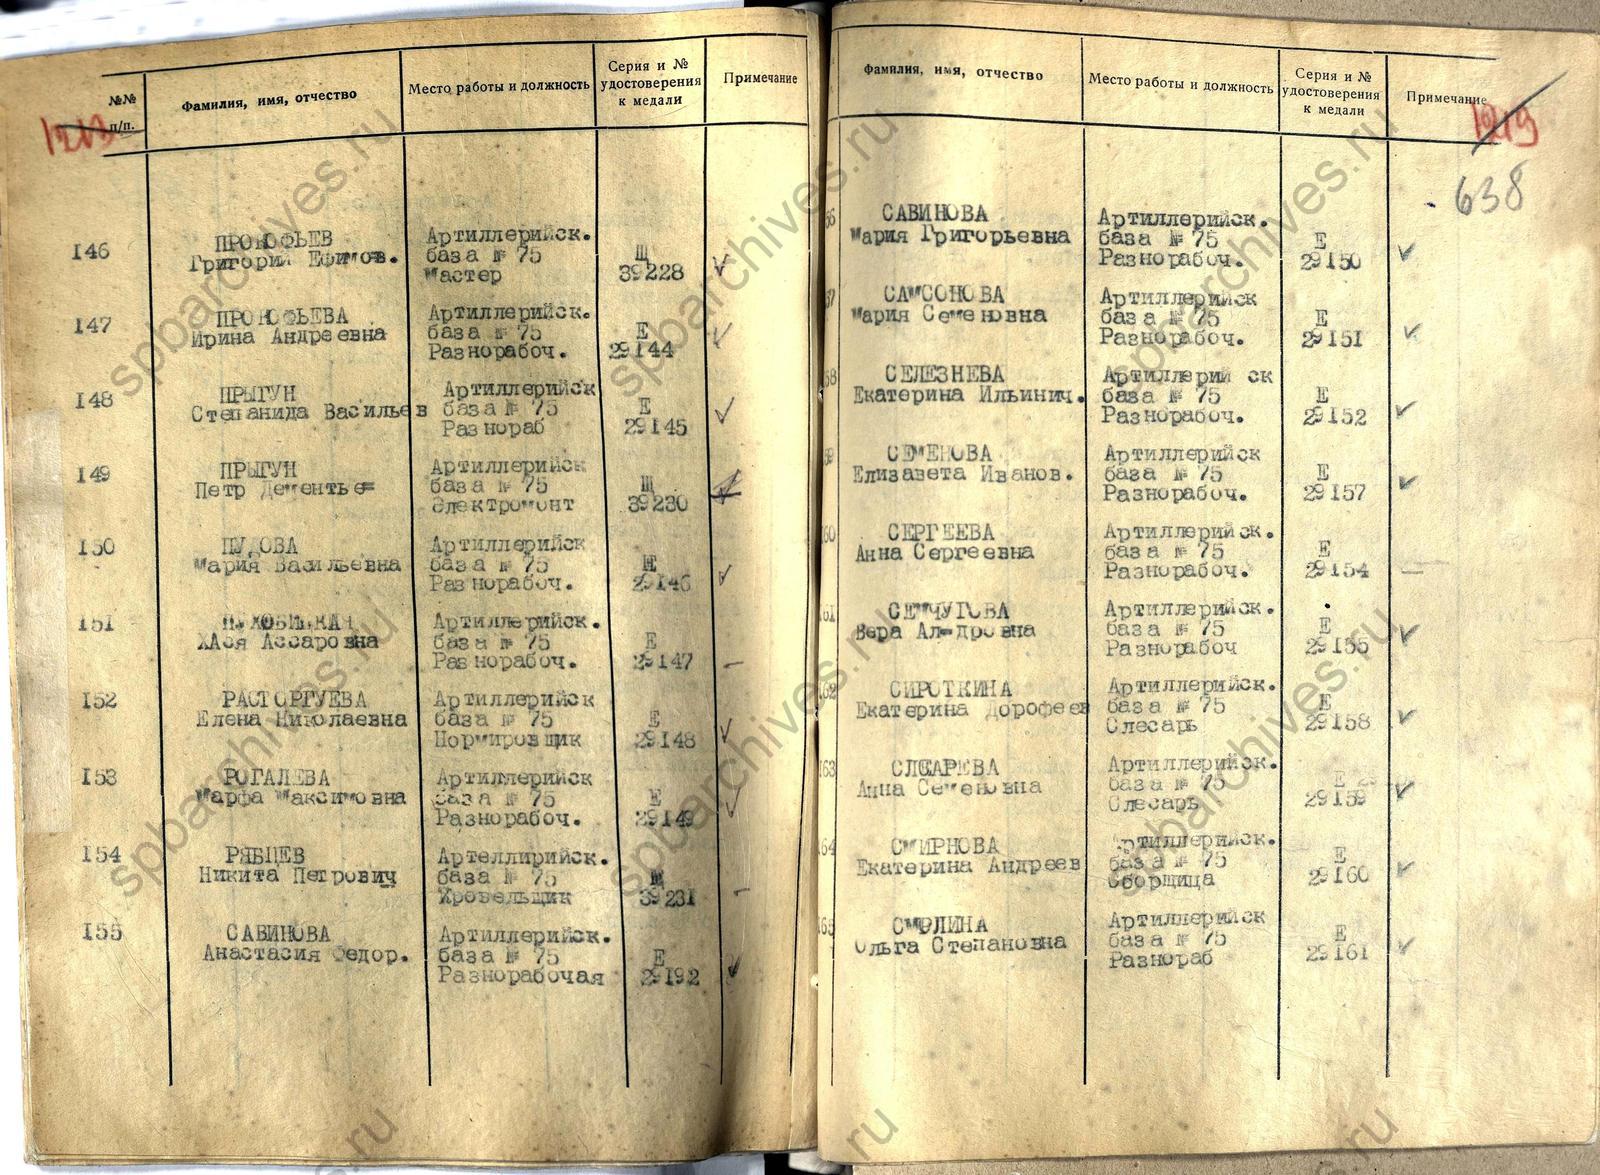 №№ п/п.
Фамилия, имя, отчество
Место работы и должность
Серия и № удостоверения к медали
Примечание
146
ПРОКОФЬЕВ
Григорий Ефимов.
Артиллерийск.
база № 75
Мастер
Щ
39228
147
ПРОКОФЬЕВА
Ирина Андреевна
Артиллерийск.
база № 75
Разнорабоч.
Е
29144
148
ПРЫГУН
Степанида Васильев
Артиллерийск
база № 75
Разнораб
Е
29145
149
ПРЫГУН
Петр Дементье=
Артиллерийск
база № 75
Электромонт
Щ
39230
150
ПУДОВА
Мария Васильевна
Артиллерийск
база № 75
Разнорабоч.
29146
151
ХАся Ассаровна
Артиллерийск.
база № 75
Разнорабоч.
Е
29147
152
РАСТОРГУЕВА
Елена Николаевна
Артиллерийск
база № 75
Нормировщик
Е
29148
153
РОГАЛЕВА
Марфа Максимовна
Артиллерийск
база № 75
Разнорабоч.
Е
29149
154
РЯБЦЕВ
Никита Петрович
Артеллирийск.
база № 75
Кровельщик
Щ
39231
155
САВИНОВА
Анастасия Федор.
Артиллерийск.
база № 75
Разнорабочая
Е
29192
Фамилия, имя, отчество
Место работы и должность
Серия и № удостоверения к медали
Примечание
1213
638
56
САВИНОВА
Мария Григорьевна
Артиллерийск.
база № 75
Разнорабоч.
Е
29150
57
САМСОНОВА
Мария Семеновна
Артиллерийск
база № 75
Разнорабоч.
Е
29151
58
СЕЛЕЗНЕВА
Екатерина Ильинич.
Артиллерий ск
база № 75
Разнорабоч.
Е
29152
59
СЕМЕНОВА
Елизавета Иванов.
Артиллерийск
база № 75
Разнорабоч.
Е
29157
60
СЕРГЕЕВА
Анна Сергеевна
Артиллерийск.
база № 75
Разнорабоч.
Е
29154
61
СЕМЧУГОВА
Вера Ал=дровна
Артиллерийск.
база № 75
Разнорабоч
Е
29155
62
СИРОТКИНА
Екатерина Дорофеев
Артиллерийск.
база № 75
Слесарь
Е
29158
63
СЛЕСАРЕВА
Анна Семеновна
Артиллерийск.
база № 75
Слесарь
Е
29159
64
СМИРНОВА
Екатерина Андреев
Артиллерийск.
база № 75
Сборщица
Е
29160
65
Ольга Степановна
Артиллерийск
база № 75
Разнораб
Е
29161
spbarchives.ru
spbarchives.ru
spbarchives.ru
spbarchives.ru
spbarchives.ru
spbarchives.ru